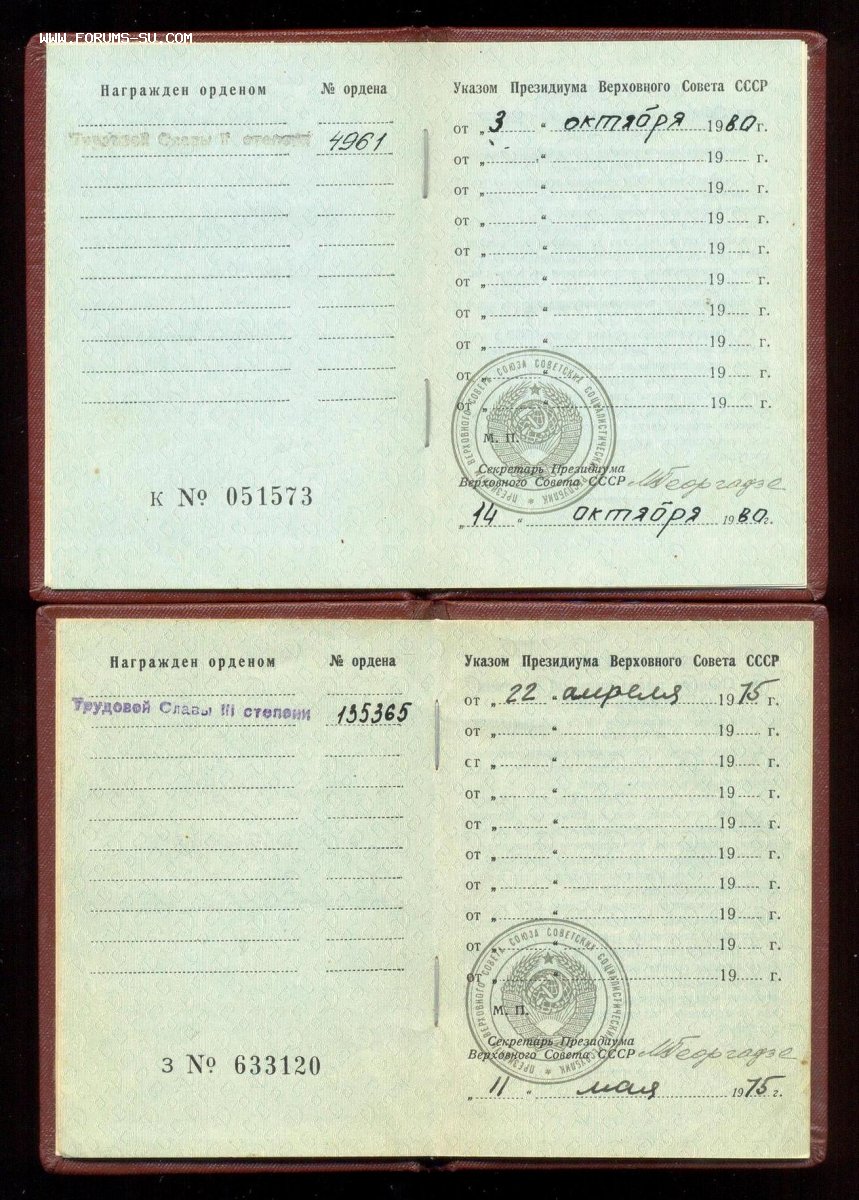 WWW.FORUMS-SU.COM
Награжден орденом № ордена
Трудовой Славы II степени 4961
к № 051573
Указом Президиума Верховного Совета СССР
от „3“ октября 1980 г.
от „ “ 19 г.
от „ “ 19 г.
от „ “ 19 г.
от „ “ 19 г.
от „ “ 19 г.
от „ “ 19 г.
от „ “ 19 г.
от „ “ 19 г.
от „ “ 19 г.
ПРЕЗИДИУМ ВЕРХОВНОГО СОВЕТА СОЮЗА СОВЕТСКИХ СОЦИАЛИСТИЧЕСКИХ РЕСПУБЛИК
М. П.
Секретарь Президиума
Верховного Совета СССР МГеоргадзе
„14“ октября 1980 г.
Награжден орденом № ордена
Трудовой Славы III степени 135365
З № 633120
Указом Президиума Верховного Совета СССР
от „22“ апреля 1975 г.
от „ “ 19 г.
ст „ “ 19 г.
от „ “ 19 г.
от „ “ 19 г.
от „ “ 19 г.
от „ “ 19 г.
от „ “ 19 г.
от „ “ 19 г.
от „ “ 19 г.
ПРЕЗИДИУМ ВЕРХОВНОГО СОВЕТА СОЮЗА СОВЕТСКИХ СОЦИАЛИСТИЧЕСКИХ РЕСПУБЛИК
М. П.
Секретарь Президиума
Верховного Совета СССР МГеоргадзе
„11“ мая 1975 г.